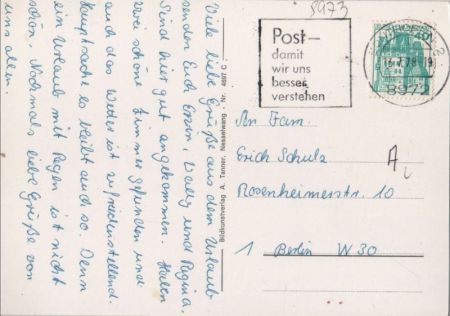 Viele liebe Grüße aus dem Urlaub
senden Euch Erwin, Wally und Regina.
Sind hier gut angekommen. Haben
zwei schöne Zimmer gefunden und
auch das Wetter ist zufriedenstellend.
Hauptsache es bleibt auch so. Denn
ein Urlaub mit Regen ist nicht
schön. Nochmals liebe Grüße von
uns allen.
Bildkunstverlag A. Tanner, Nesselwang · Nr. 4987 C
8973
Post–
damit
wir uns
besser
verstehen
2
16.7.79-19
40
An Fam.
Erich Schulz
Rosenheimerstr. 10
1 Berlin W 30